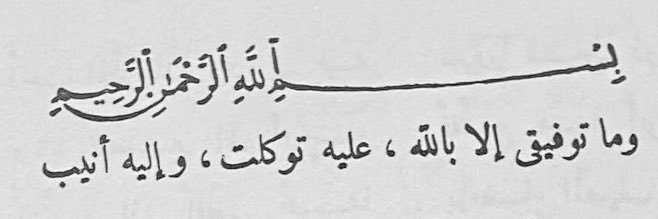 بِسْمِ ٱللَّهِ ٱلرَّحْمَٰنِ ٱلرَّحِيمِ
وما توفيقى إلا بالله ، عليه توكلت ، وإليه أنيب